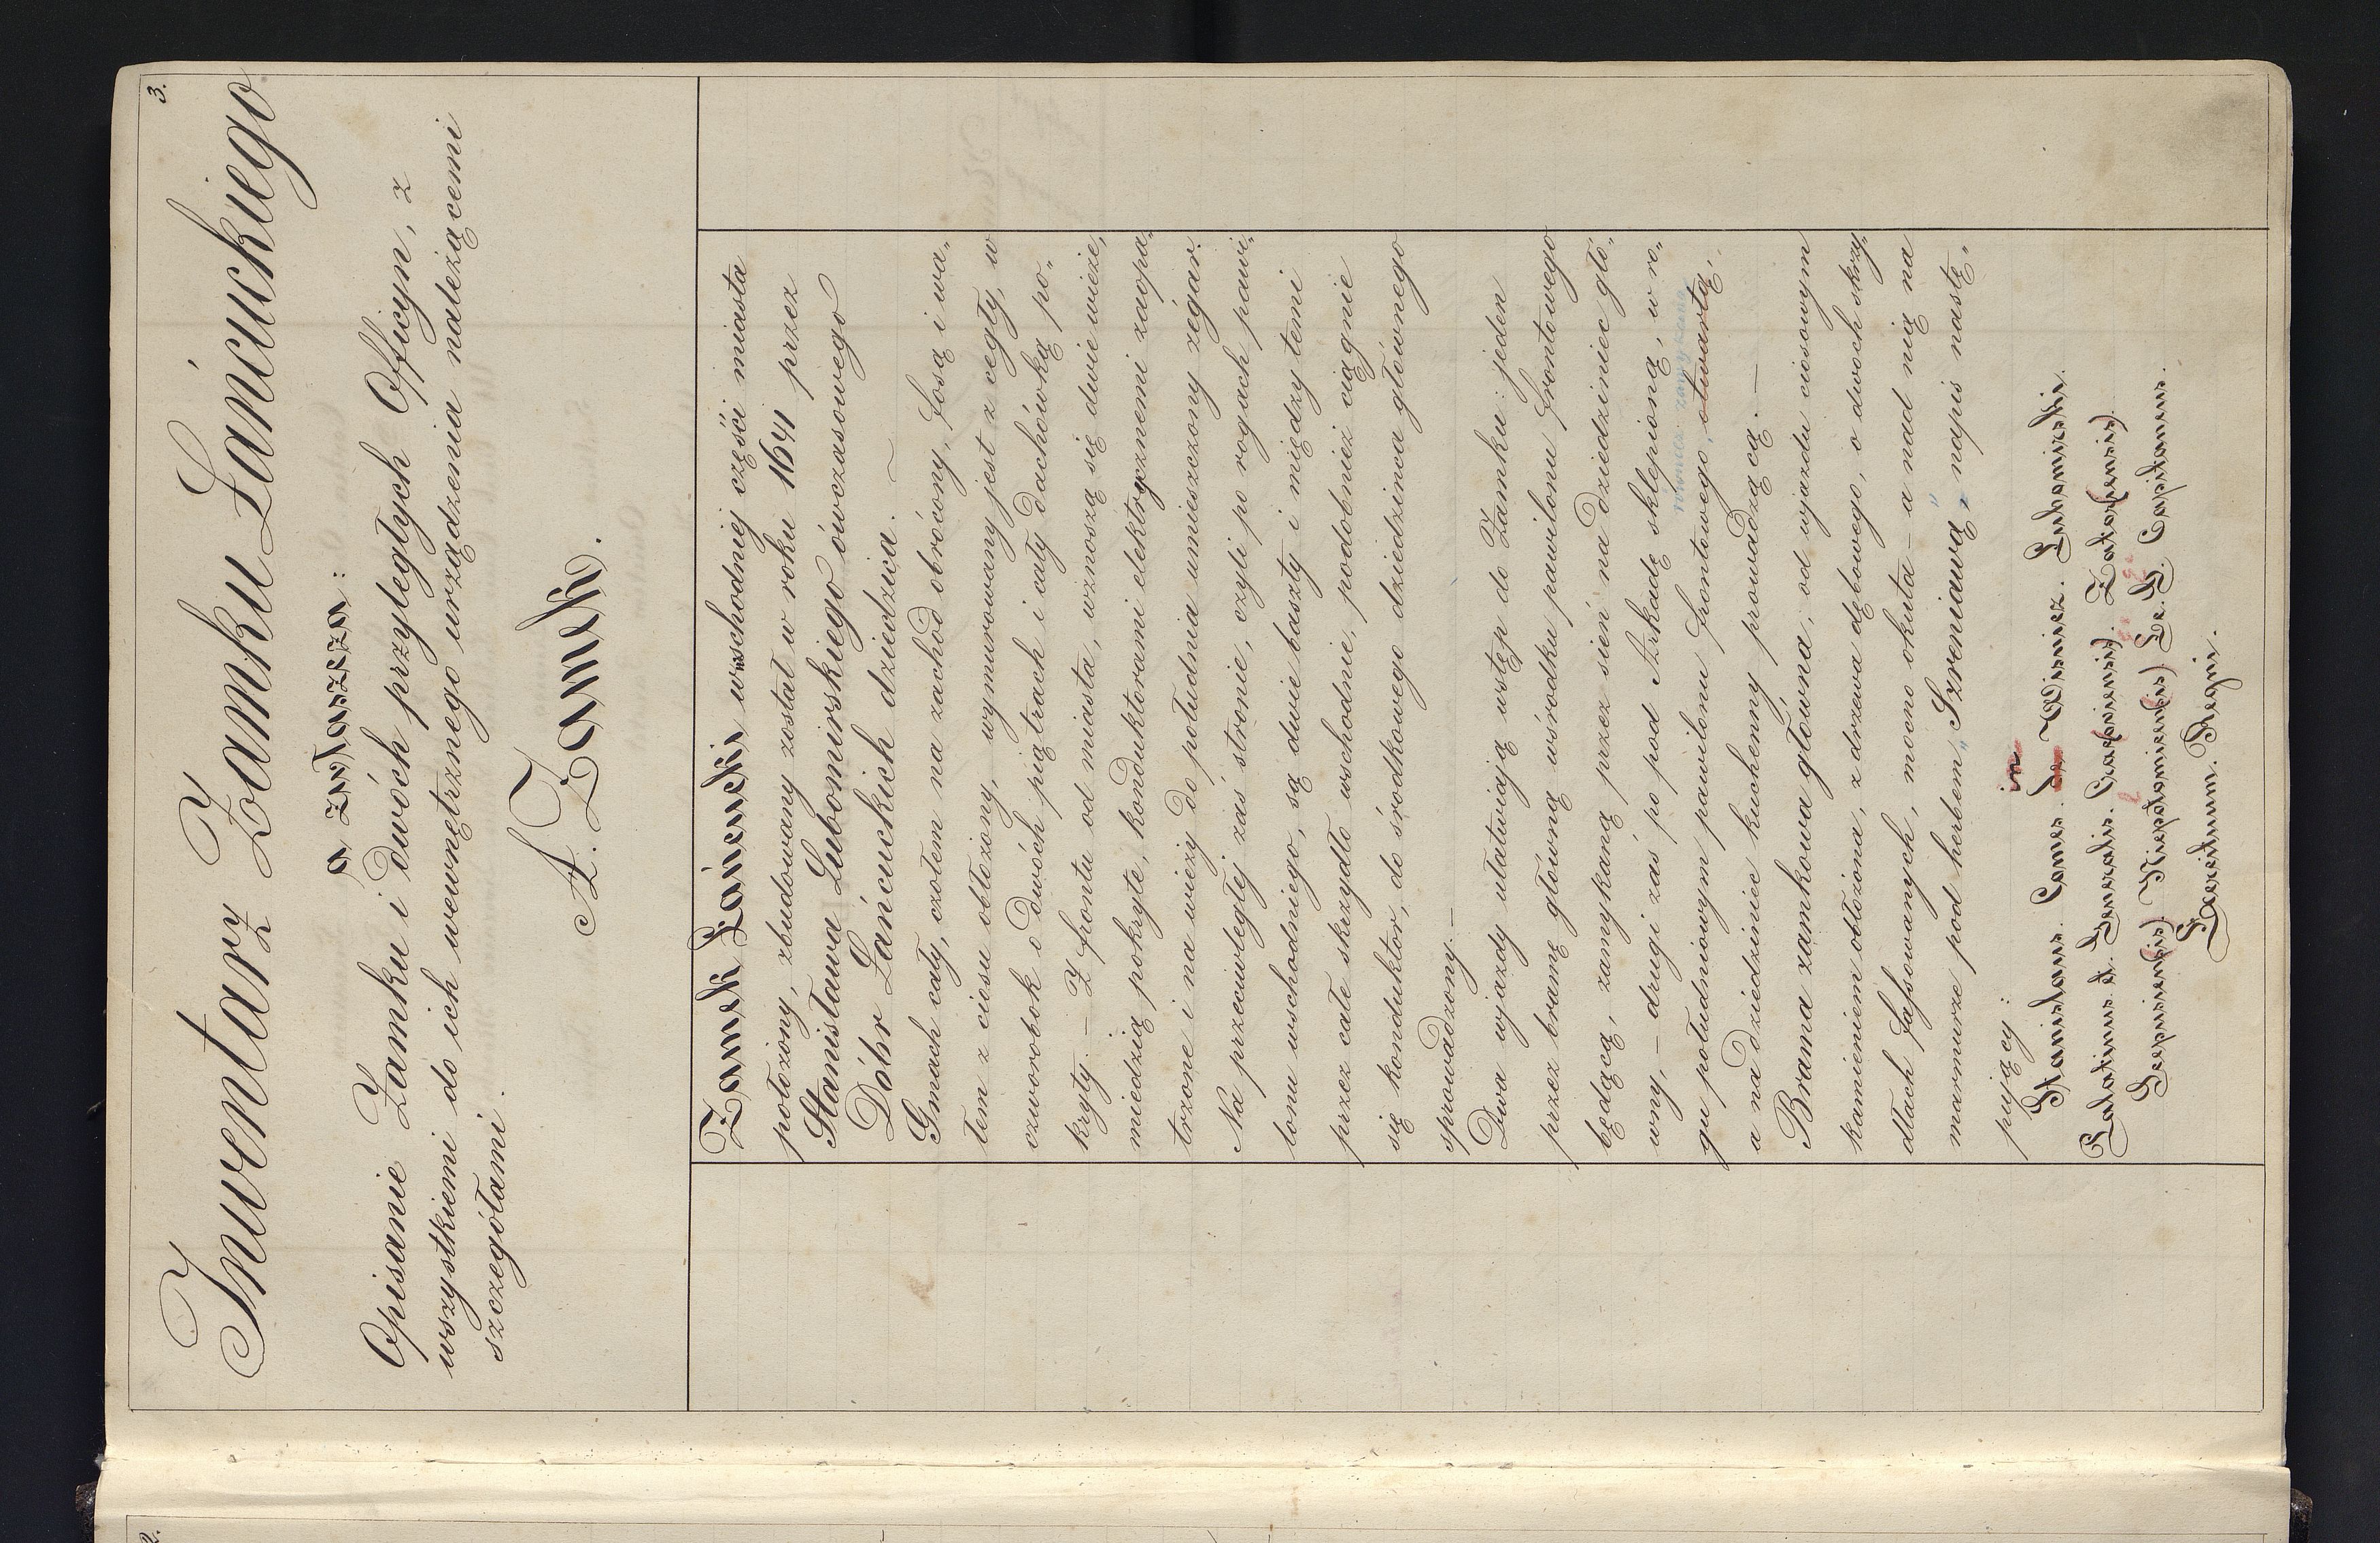 3.
Inwentarz Zamku Łańcuckiego
a zwłaszcza:
Opisanie Zamku i dwóch przyległych Officyn, z
wszystkiemi do ich wewnętrznego urządzenia należącemi
szczegółami.
A. Zamek.
Zamek Łańcucki wschodniej części miasta
położony, zbudowany został w roku 1641 przez
Stanisława Lubomirskiego ówczasowego
Dóbr Łańcuckich dziedzica. —
Gmach cały, czołem na zachód obrócony, fosą i wa„
łem z ciosu obłożony, wymurowany jest z cegły, w
czworobok o dwóch piątrach i cały dachówką po„
kryty. — Z frontu od miasta, wznoszą się dwie wieże,
miedzią pokryte, konduktorami elektrycznemi zaopa„
trzone i na wieży do południa umieszczony zégar.
Na przeciwległej zaś stronie, czyli po rogach pawi„
lonu wschodniego, są dwie baszty i między temi
przez całe skrzydło wschodnie, podobnież ciągnie
się konduktor, do środkowego dziedzińca głównego
sprowadzony. —
Dwa wjazdy ułatwiają wstęp do Zamku: jeden
przez bramę główną wśrodku pawilonu frontowego
będącą, zamykaną przez sień na dziedziniec głó„
wny, — drugi zaś po pod Arkadę sklepioną, w ro„
gu południowym pawilonu frontowego, otwartą,
a na dziedziniec kuchenny prowadzącą. —
Brama zamkowa główna, od wjazdu ciosowym
kamieniem obłożona, z drzewa dębowego, o dwóch skrzy„
dłach fassowanych, mocno okuta — a nad nią na
marmurze pod herbem „Szreniawa„ napis nastę„
pujący:
in
Stanislaus. Comes. de Wisnicz. Lubomirski.
Palatinus et. Generalis. Cracoviensis). Zatoriensis)
Scepusiensis). Niepołomicensis) Le. S. Capitaneus.
Aedium. Regni.